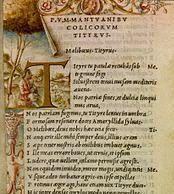 P. V. M. MANTVANI BV
COLICORVM
TITYRVS.
Meliboeus. Tityrus.
Tityre tu patulæ recubās sub Me.
tegmine fagi
Siluestrem tenui musam meditaris
auena,
Nos patriæ fines, et dulcia linqui
mus arua,
N os patriam fugimus, tu Tityre lentus in umbra
F ormosam resonare doces Amaryllida syluas.
O Meliboee, deus nobis hæc ocia fecit. Ti.
N anque erit ille mihi semper deus, illius aram
S æpe tener nostris ab ouilibus imbuet agnus.
I lle meas errare boues, ut cernis, et ipsum
L udere, quæ uellem, calamo permisit agresti.
N on equidem inuideo, miror magis, undique totis Me.
V sque adeo turbatur agris. en ipse capellas
P rotenus æger ago, hanc etiam uix Tityre duco.